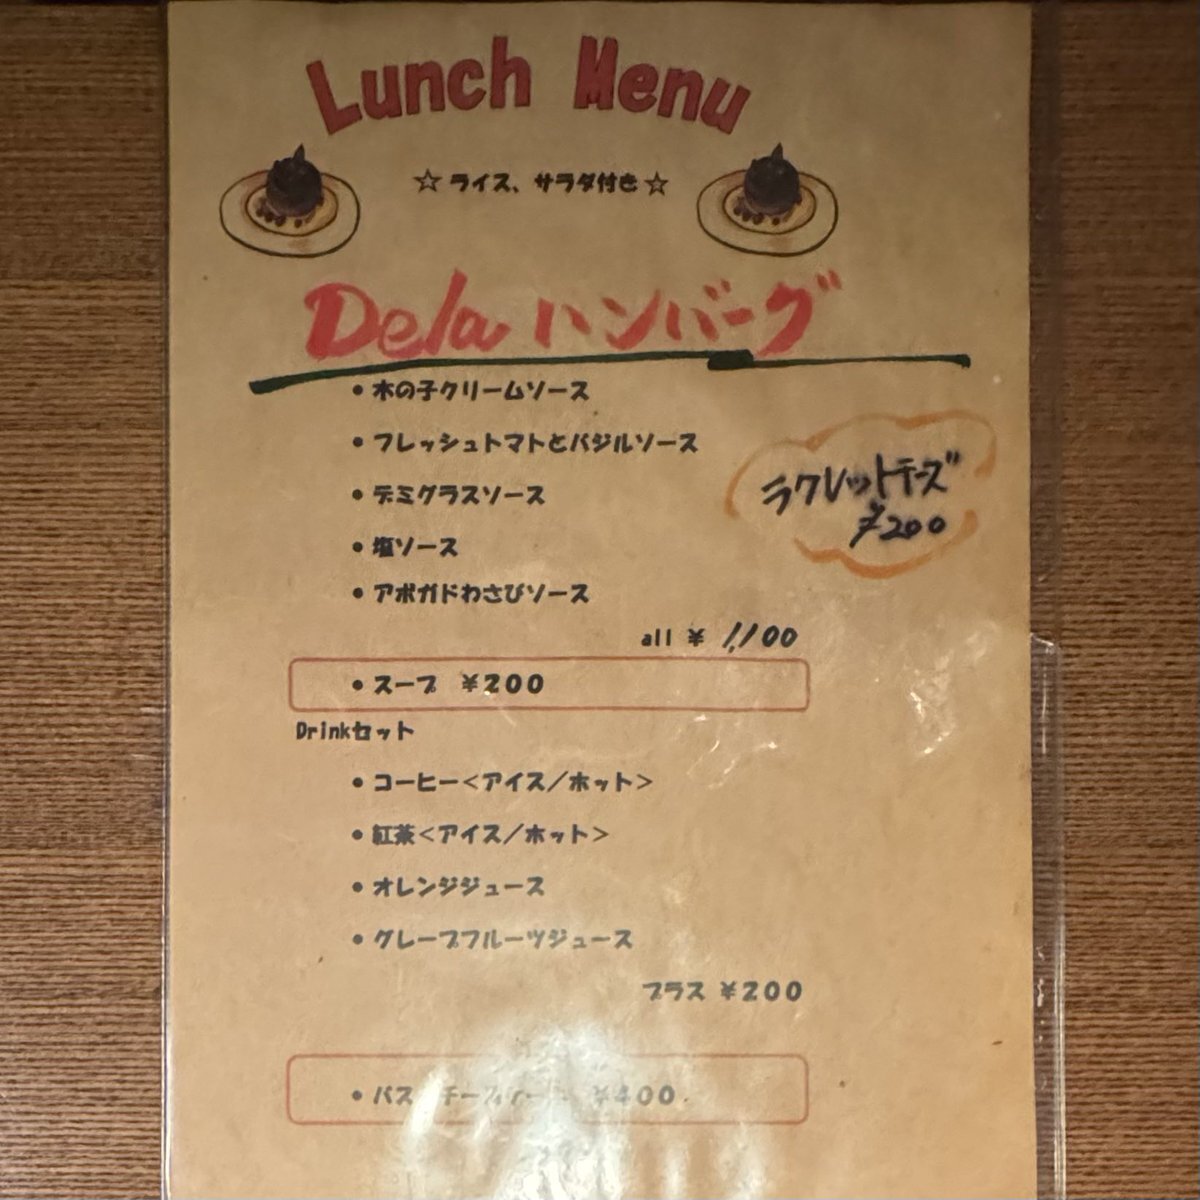 Lunch Menu
☆ライス、サラダ付き☆
Dela ハンバーグ
・木の子クリームソース
・フレッシュトマトとバジルソース
・デミグラスソース
・塩ソース
・アボガドわさびソース
ラクレットチーズ
¥200
all ¥ 1,100
・スープ ¥200
Drinkセット
・コーヒー<アイス/ホット>
・紅茶<アイス/ホット>
・オレンジジュース
・グレープフルーツジュース
プラス ¥200
・バス ¥400